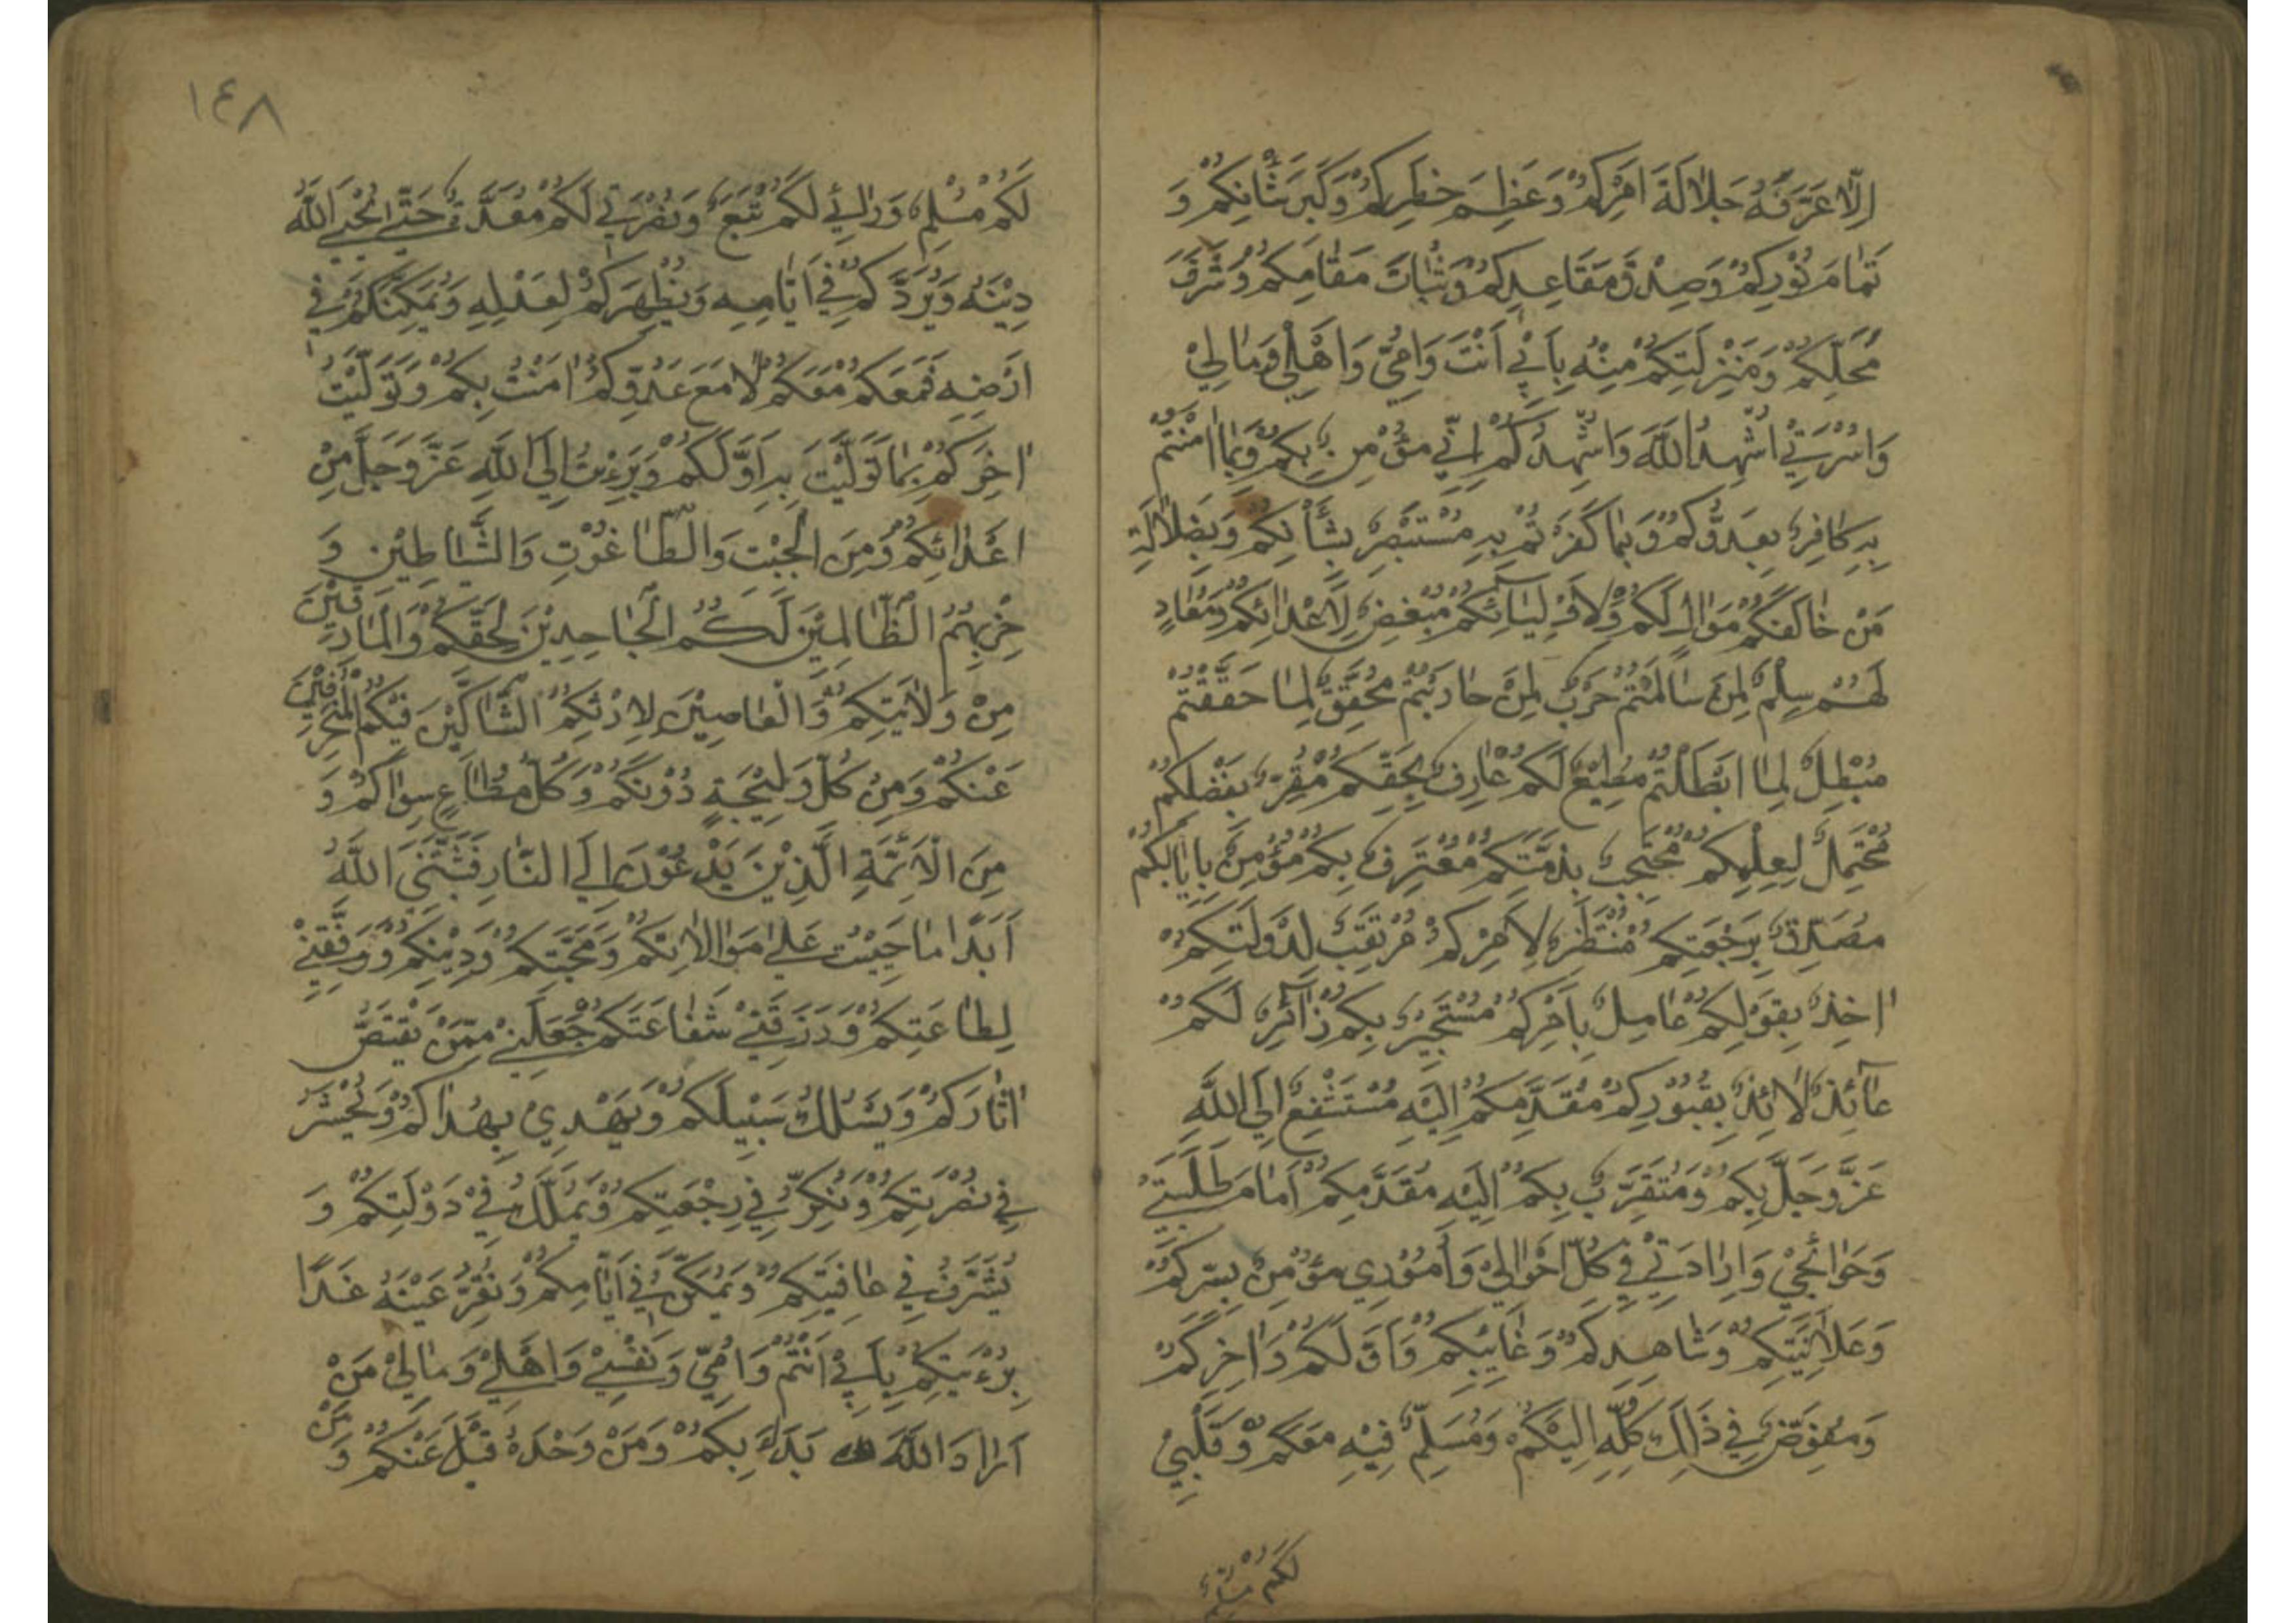 اِلَّا عَرَّفَهُ جَلَالَةَ اَمْرِكُمْ وَعَظِمَ خَطَرِكُمْ وَكَبِرَ شَانِكُمْ وَ
تَمَامَ نُوْرِكُمْ وَصِدْقَ مَقَاعِدِكُمْ وَثَبَاتَ مَقَامِكُمْ وَشَرَفَ
مَحَلِّكُمْ وَمَنْزِلَتِكُمْ مِنْهُ بِاَبِيْ اَنْتَ وَاُمِّيْ وَاَهْلِيْ وَمَالِيْ
وَاُسْرَتِيْ اُشْهِدُ اللّٰهَ وَاُشْهِدُكُمْ اِنِّيْ مُؤْمِنٌ بِكُمْ وَبِمَا اٰمَنْتُمْ
بِهِ كَافِرٌ بِعَدُوِّكُمْ وَبِمَا كَفَرْتُمْ بِهِ مُسْتَبْصِرٌ بِشَأْنِكُمْ وَبِضَلَالَةِ
مَنْ خَالَفَكُمْ مُوَالٍ لَكُمْ وَلِاَوْلِيَائِكُمْ مُبْغِضٌ لِاَعْدَائِكُمْ وَمُعَادٍ
لَهُمْ سِلْمٌ لِمَنْ سَالَمْتُمْ حَرْبٌ لِمَنْ حَارَبْتُمْ مُحَقِّقٌ لِمَا حَقَّقْتُمْ
مُبْطِلٌ لِمَا اَبْطَلْتُمْ مُطِيْعٌ لَكُمْ عَارِفٌ بِحَقِّكُمْ مُقِرٌّ بِفَضْلِكُمْ
مُحْتَمِلٌ لِعِلْمِكُمْ مُحْتَجِبٌ بِذِمَّتِكُمْ مُعْتَرِفٌ بِكُمْ مُؤْمِنٌ بِاِيَابِكُمْ
مُصَدِّقٌ بِرَجْعَتِكُمْ مُنْتَظِرٌ لِاَمْرِكُمْ مُرْتَقِبٌ لِدَوْلَتِكُمْ
اٰخِذٌ بِقَوْلِكُمْ عَامِلٌ بِاَمْرِكُمْ مُسْتَجِيْرٌ بِكُمْ زَائِرٌ لَكُمْ
عَائِذٌ لَائِذٌ بِقُبُوْرِكُمْ مُقَدِّمُكُمْ اِلَيْهِ مُسْتَشْفِعٌ اِلَى اللّٰهِ
عَزَّ وَجَلَّ بِكُمْ وَمُتَقَرِّبٌ بِكُمْ اِلَيْهِ مُقَدِّمُكُمْ اَمَامَ طَلِبَتِيْ
وَحَوَائِجِيْ وَاِرَادَتِيْ فِيْ كُلِّ اَحْوَالِيْ وَاُمُوْرِي مُؤْمِنٌ بِسِرِّكُمْ
وَعَلَانِيَتِكُمْ وَشَاهِدِكُمْ وَغَايِبِكُمْ وَاَوَّلِكُمْ وَاٰخِرِكُمْ
وَمُفَوِّضٌ فِيْ ذَالِكَ كُلِّهِ اِلَيْكُمْ وَمُسَلِّمٌ فِيْهِ مَعَكُمْ وَقَلْبِيْ
لَكُمْ مُسْلِمٌ
١٤٨
لَكُمْ مُسْلِمٌ وَرَائِيْ لَكُمْ تَبَعٌ وَنُصْرَتِيْ لَكُمْ مُعَدَّةٌ حَتّٰى يُحْيِيَ اللّٰهُ
دِيْنَهُ وَيَرُدَّكُمْ فِيْ اَيَّامِهِ وَيُظْهِرَكُمْ لِعَدْلِهِ وَيُمَكِّنَكُمْ فِيْ
اَرْضِهِ فَمَعَكُمْ مَعَكُمْ لَا مَعَ عَدُوِّكُمْ اٰمَنْتُ بِكُمْ وَتَوَلَّيْتُ
اٰخِرَكُمْ بِمَا تَوَلَّيْتُ بِهِ اَوَّلَكُمْ وَبَرِءْتُ اِلَى اللّٰهِ عَزَّ وَجَلَّ مِنْ
اَعْدَائِكُمْ وَمِنَ الْجِبْتِ وَالطَّاغُوْتِ وَالشَّيَاطِيْنِ وَ
حِزْبِهِمُ الظَّالِمِيْنَ لَكُمُ الْجَاحِدِيْنَ لِحَقِّكُمْ وَالْمَارِقِيْنَ
مِنْ وَلَايَتِكُمْ وَالْغَاصِبِيْنَ لِاِرْثِكُمْ الشَّاكِّيْنَ فِيْكُمُ الْمُنْحَرِفِيْنَ
عَنْكُمْ وَمِنْ كُلِّ وَلِيْجَةٍ دُوْنَكُمْ وَكُلِّ مُطَاعٍ سِوَاكُمْ وَ
مِنَ الْاَئِمَّةِ الَّذِيْنَ يَدْعُوْنَ اِلَى النَّارِ فَثَبَّتَنِيَ اللّٰهُ
اَبَدًا مَا حَيِيْتُ عَلٰى مُوَالَاتِكُمْ وَمَحَبَّتِكُمْ وَدِيْنِكُمْ وَوَفَّقَنِيْ
لِطَاعَتِكُمْ وَرَزَقَنِيْ شَفَاعَتَكُمْ جَعَلَنِيْ مِمَّنْ يَقْتَصُّ
اٰثَارَكُمْ وَيَسْلُكُ سَبِيْلَكُمْ وَيَهْدِيْ بِهُدَاكُمْ وَيُحْشَرُ
فِيْ نُصْرَتِكُمْ وَيُكِرُّ فِيْ رِجْعَتِكُمْ وَيُمَلَّكُ فِيْ دَوْلَتِكُمْ وَ
يُشَرَّفُ فِيْ عَافِيَتِكُمْ وَيُمَكَّنُ فِيْ اَيَّامِكُمْ وَتَقِرُّ عَيْنُهُ غَدًا
بِرُءْيَتِكُمْ بِاَبِيْ اَنْتُمْ وَاُمِّيْ وَنَفْسِيْ وَاَهْلِيْ وَمَالِيْ مَنْ
اَرَادَ اللّٰهَ بَدَءَ بِكُمْ وَمَنْ وَحَّدَهُ قَبِلَ عَنْكُمْ وَمَنْ